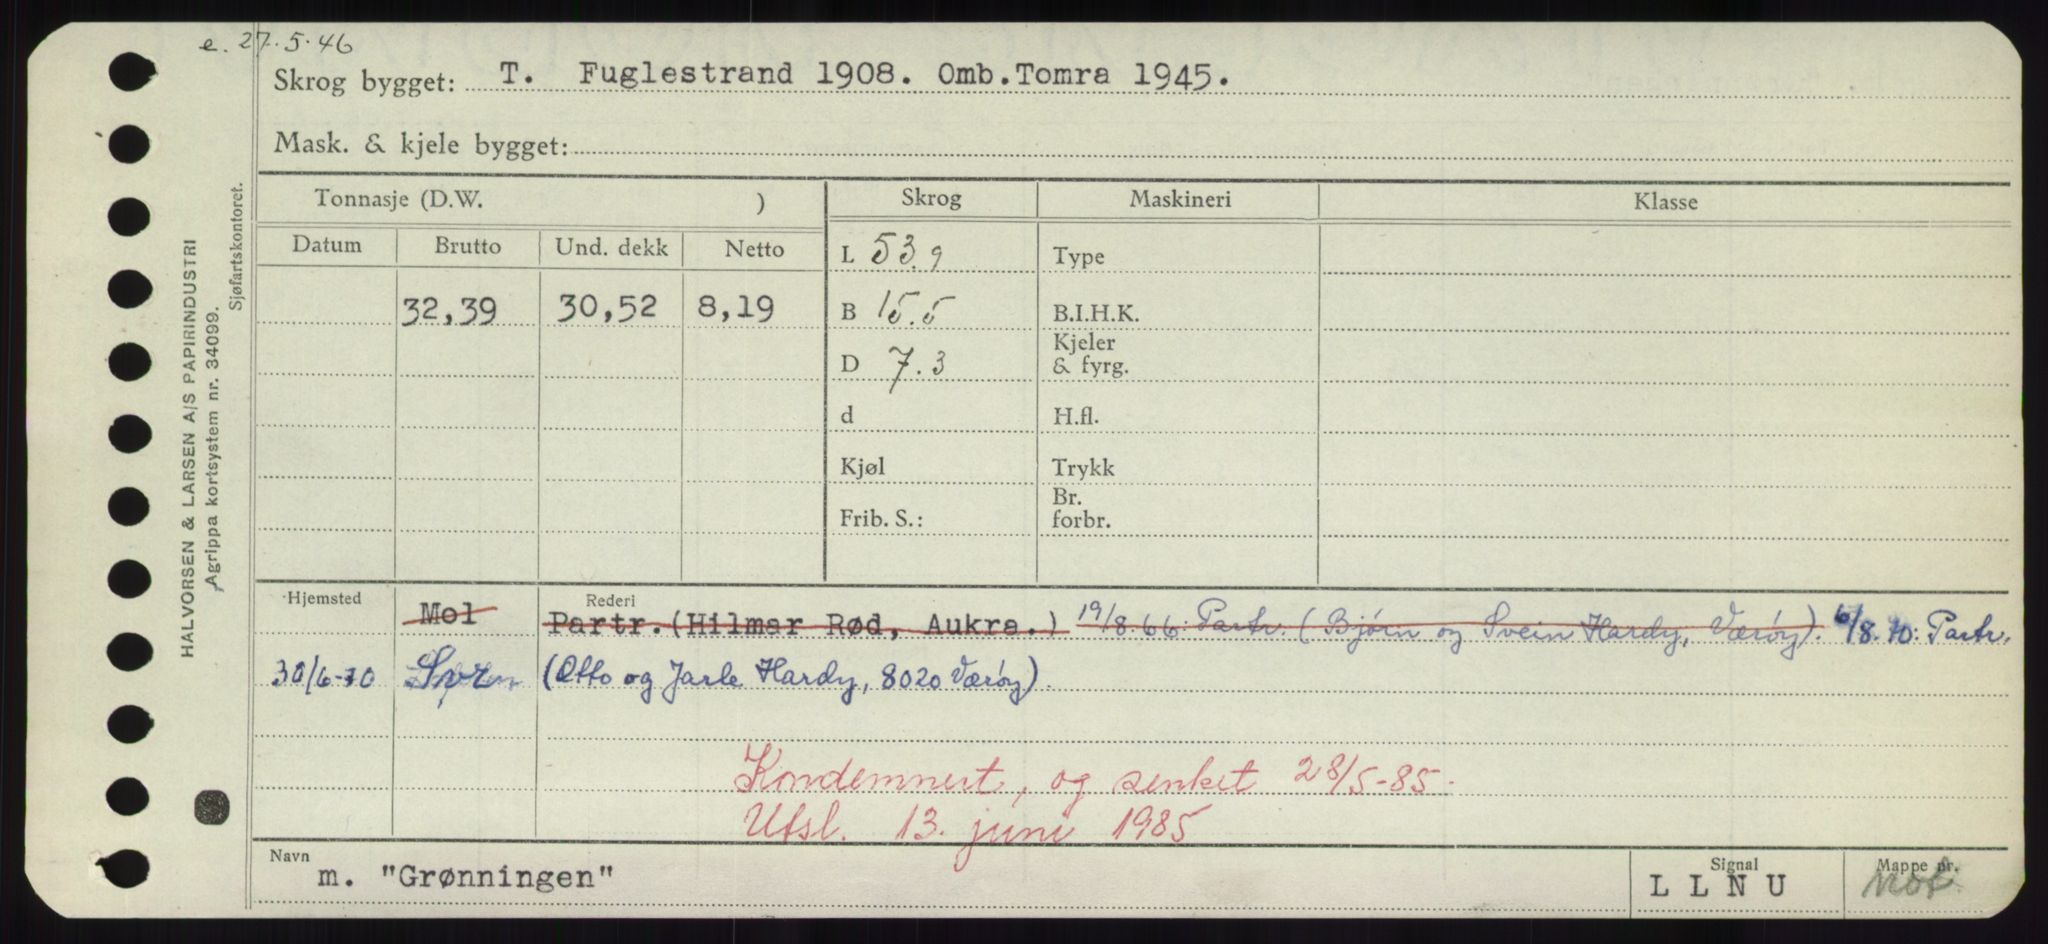 e. 27.5.46
Skrog bygget: T. Fuglestrand 1908. Omb.Tomra 1945.
Mask. & kjele bygget:
Tonnasje (D.W. ) Skrog Maskineri Klasse
Datum Brutto Und. dekk Netto L 53.9 Type
32,39 30,52 8,19 B 15.5 B.I.H.K.
D 7.3 Kjeler & fyrg.
d H.fl.
Kjøl Trykk
Frib. S.: Br. forbr.
Hjemsted Rederi
Mol Partr.(Hilmar Rød, Aukra.) 19/8.66: Partr. (Bjørn og Svein Hardy, Værøy). 6/8.70: Partr.
30/6-70 (Otto og Jarle Hardy, 8020 Værøy).
Kondemnert, og senket 28/5-85.
Utsl. 13. juni 1985
Navn Signal Mappe nr.
m. "Grønningen" L L N U
HALVORSEN & LARSEN A/S PAPIRINDUSTRI
Agrippa kortsystem nr. 34099.
Sjøfartskontoret.